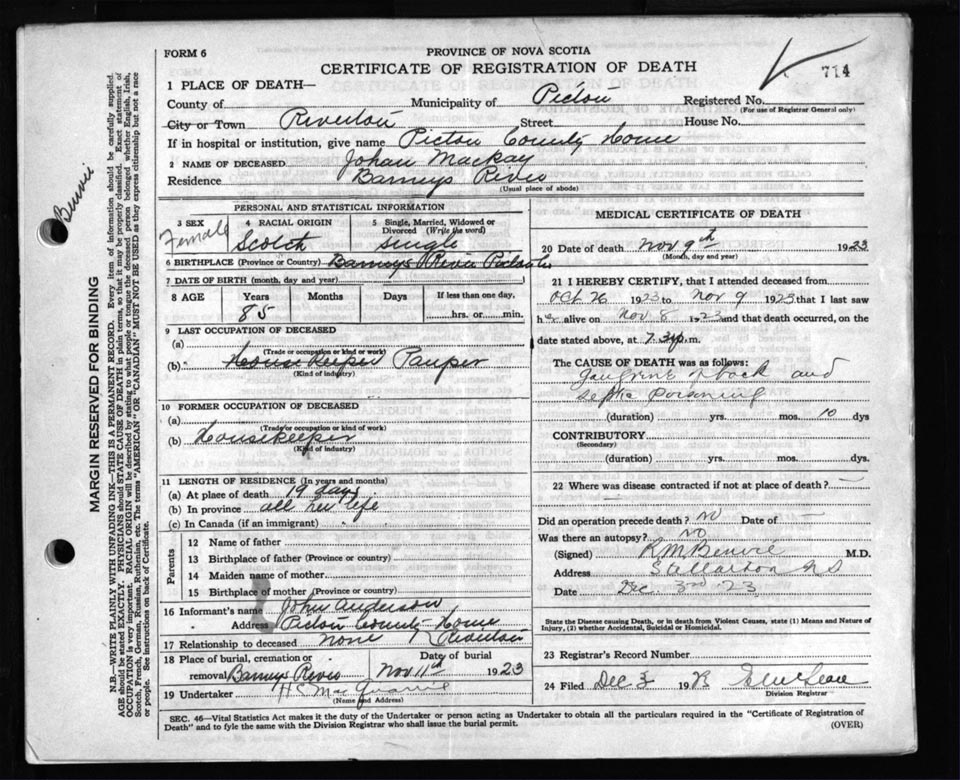 FORM 6
PROVINCE OF NOVA SCOTIA
CERTIFICATE OF REGISTRATION OF DEATH
714
1 PLACE OF DEATH—
County of Municipality of Pictou Registered No.
(For use of Registrar General only)
City or Town Riverton Street House No.
If in hospital or institution, give name Pictou County Home
2 NAME OF DECEASED Johan Mackay
Residence Barneys River
(Usual place of abode)
PERSONAL AND STATISTICAL INFORMATION
3 SEX 4 RACIAL ORIGIN 5 Single, Married, Widowed or Divorced (Write the word)
Female Scotch single
6 BIRTHPLACE (Province or Country) Barneys River Pictou Co
7 DATE OF BIRTH (month, day and year)
8 AGE Years Months Days If less than one day,
85 hrs. or min.
9 LAST OCCUPATION OF DECEASED
(a)
(Trade or occupation or kind of work)
(b) Housekeeper Pauper
(Kind of industry)
10 FORMER OCCUPATION OF DECEASED
(a)
(Trade or occupation or kind of work)
(b) Housekeeper
(Kind of industry)
11 LENGTH OF RESIDENCE (In years and months)
(a) At place of death 19 days
(b) In province all her life
(c) In Canada (if an immigrant)
Parents
12 Name of father
13 Birthplace of father (Province or country)
14 Maiden name of mother
15 Birthplace of mother (Province or country)
16 Informant's name John Anderson
Address Pictou County Home
17 Relationship to deceased none Riverton
18 Place of burial, cremation or removal Barneys River Date of burial Nov 11th 1923
19 Undertaker H C MacQuarrie
(Name and Address)
MEDICAL CERTIFICATE OF DEATH
20 Date of death Nov 9th 1923
(Month, day and year)
21 I HEREBY CERTIFY, that I attended deceased from
Oct 26 1923 to Nov 9 1923 that I last saw
her alive on Nov 8 1923 and that death occurred, on
date stated above, at 7.30 p.m.
The CAUSE OF DEATH was as follows:
Gangrene of back and
septic poisoning
(duration) yrs. mos. 10 dys
CONTRIBUTORY
(Secondary)
(duration) yrs. mos. dys.
22 Where was disease contracted if not at place of death? —
Did an operation precede death? No Date of —
Was there an autopsy? No
(Signed) R M Benvie M.D.
Address Stellarton NS
Date Dec. 3rd 23
State the Disease causing Death, or in death from Violent Causes, state (1) Means and Nature of Injury, (2) whether Accidental, Suicidal or Homicidal.
23 Registrar's Record Number
24 Filed Dec 3 192
Division Registrar
SEC. 46—Vital Statistics Act makes it the duty of the Undertaker or person acting as Undertaker to obtain all the particulars required in the "Certificate of Registration of
Death" and to fyle the same with the Division Registrar who shall issue the burial permit.
(OVER)
Benvie
MARGIN RESERVED FOR BINDING
N.B.—WRITE PLAINLY WITH UNFADING INK—THIS IS A PERMANENT RECORD. Every item of information should be carefully supplied.
AGE should be stated EXACTLY. PHYSICIANS should STATE CAUSE OF DEATH in plain terms, so that it may be properly classified. Exact statement of
OCCUPATION is very important. RACIAL ORIGIN will be described by stating to what people or tongue the deceased person belonged whether English, Irish,
Scotch, French, German, Russian, Ruthenian, etc. The terms "AMERICAN" OR "CANADIAN" MUST NOT BE USED as they express citizenship but not a race
or people. See instructions on back of Certificate.